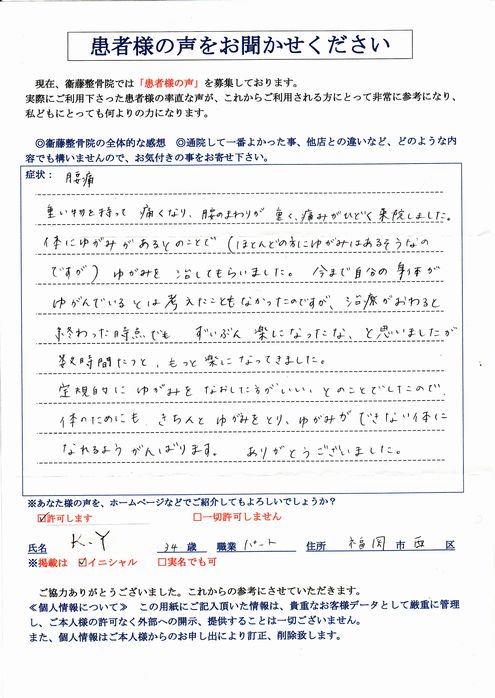 患者様の声をお聞かせください
現在、衞藤整骨院では「患者様の声」を募集しております。
実際にご利用下さった患者様の率直な声が、これからご利用される方にとって非常に参考になり、
私どもにとっても何よりの力になります。
◎衞藤整骨院の全体的な感想　◎通院して一番よかった事、他店との違いなど、どのような内
容でも構いませんので、お気付きの事をお寄せ下さい。
症状： 腰痛
重い物を持って 痛くなり、腰のまわりが 重く、痛みがひどく 来院しました。
体にゆがみがあるとのことで（ほとんどの方にゆがみはあるそうなの
ですが）ゆがみを 治してもらいました。 今まで自分の 身体が
ゆがんでいるとは考えたこともなかったのですが、治療がおわると
終わった時点でも ずいぶん 楽になったな、と思いましたが
数時間たつと、もっと楽になってきました。
定規的に ゆがみを なおした方がいい、とのことでしたので、
体のためにも きちんと ゆがみをとり、ゆがみが できない体に
なれるよう がんばります。 ありがとうございました。
※あなた様の声を、ホームページなどでご紹介してもよろしいでしょうか？
☑許可します　□一切許可しません
氏名 K.Y 34 歳 職業 パート 住所 福岡 市 西 区
※掲載は ☑イニシャル □実名でも可
ご協力ありがとうございました。これからの参考にさせていただきます。
≪個人情報について≫　この用紙にご記入頂いた情報は、貴重なお客様データとして厳重に管理
し、ご本人様の許可なく外部への開示、提供することは一切ございません。
また、個人情報はご本人様からのお申し出により訂正、削除致します。